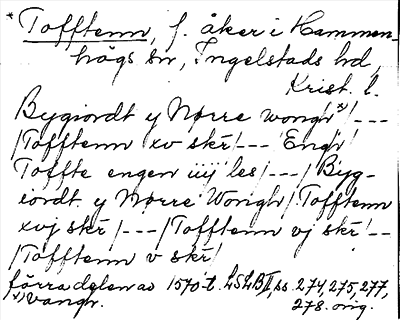 * Tofftenn, f. åker i Hammen-
högs sn, Ingelstads hd,
Krist. l.
Bygiordt y Nørre wongh x) / ---
/ Tofftenn xv skr / --- Engh /
Toffte engen iiij les / --- / Byg-
iordt y Nørre Wongh / Tofftenn
xvj skr / --- / Tofftenn vj skr / ---
/ Tofftenn v skr /
förra delen av 1570-t. LSLB II, ss. 274, 275, 277,
x) vangr. 278. orig.